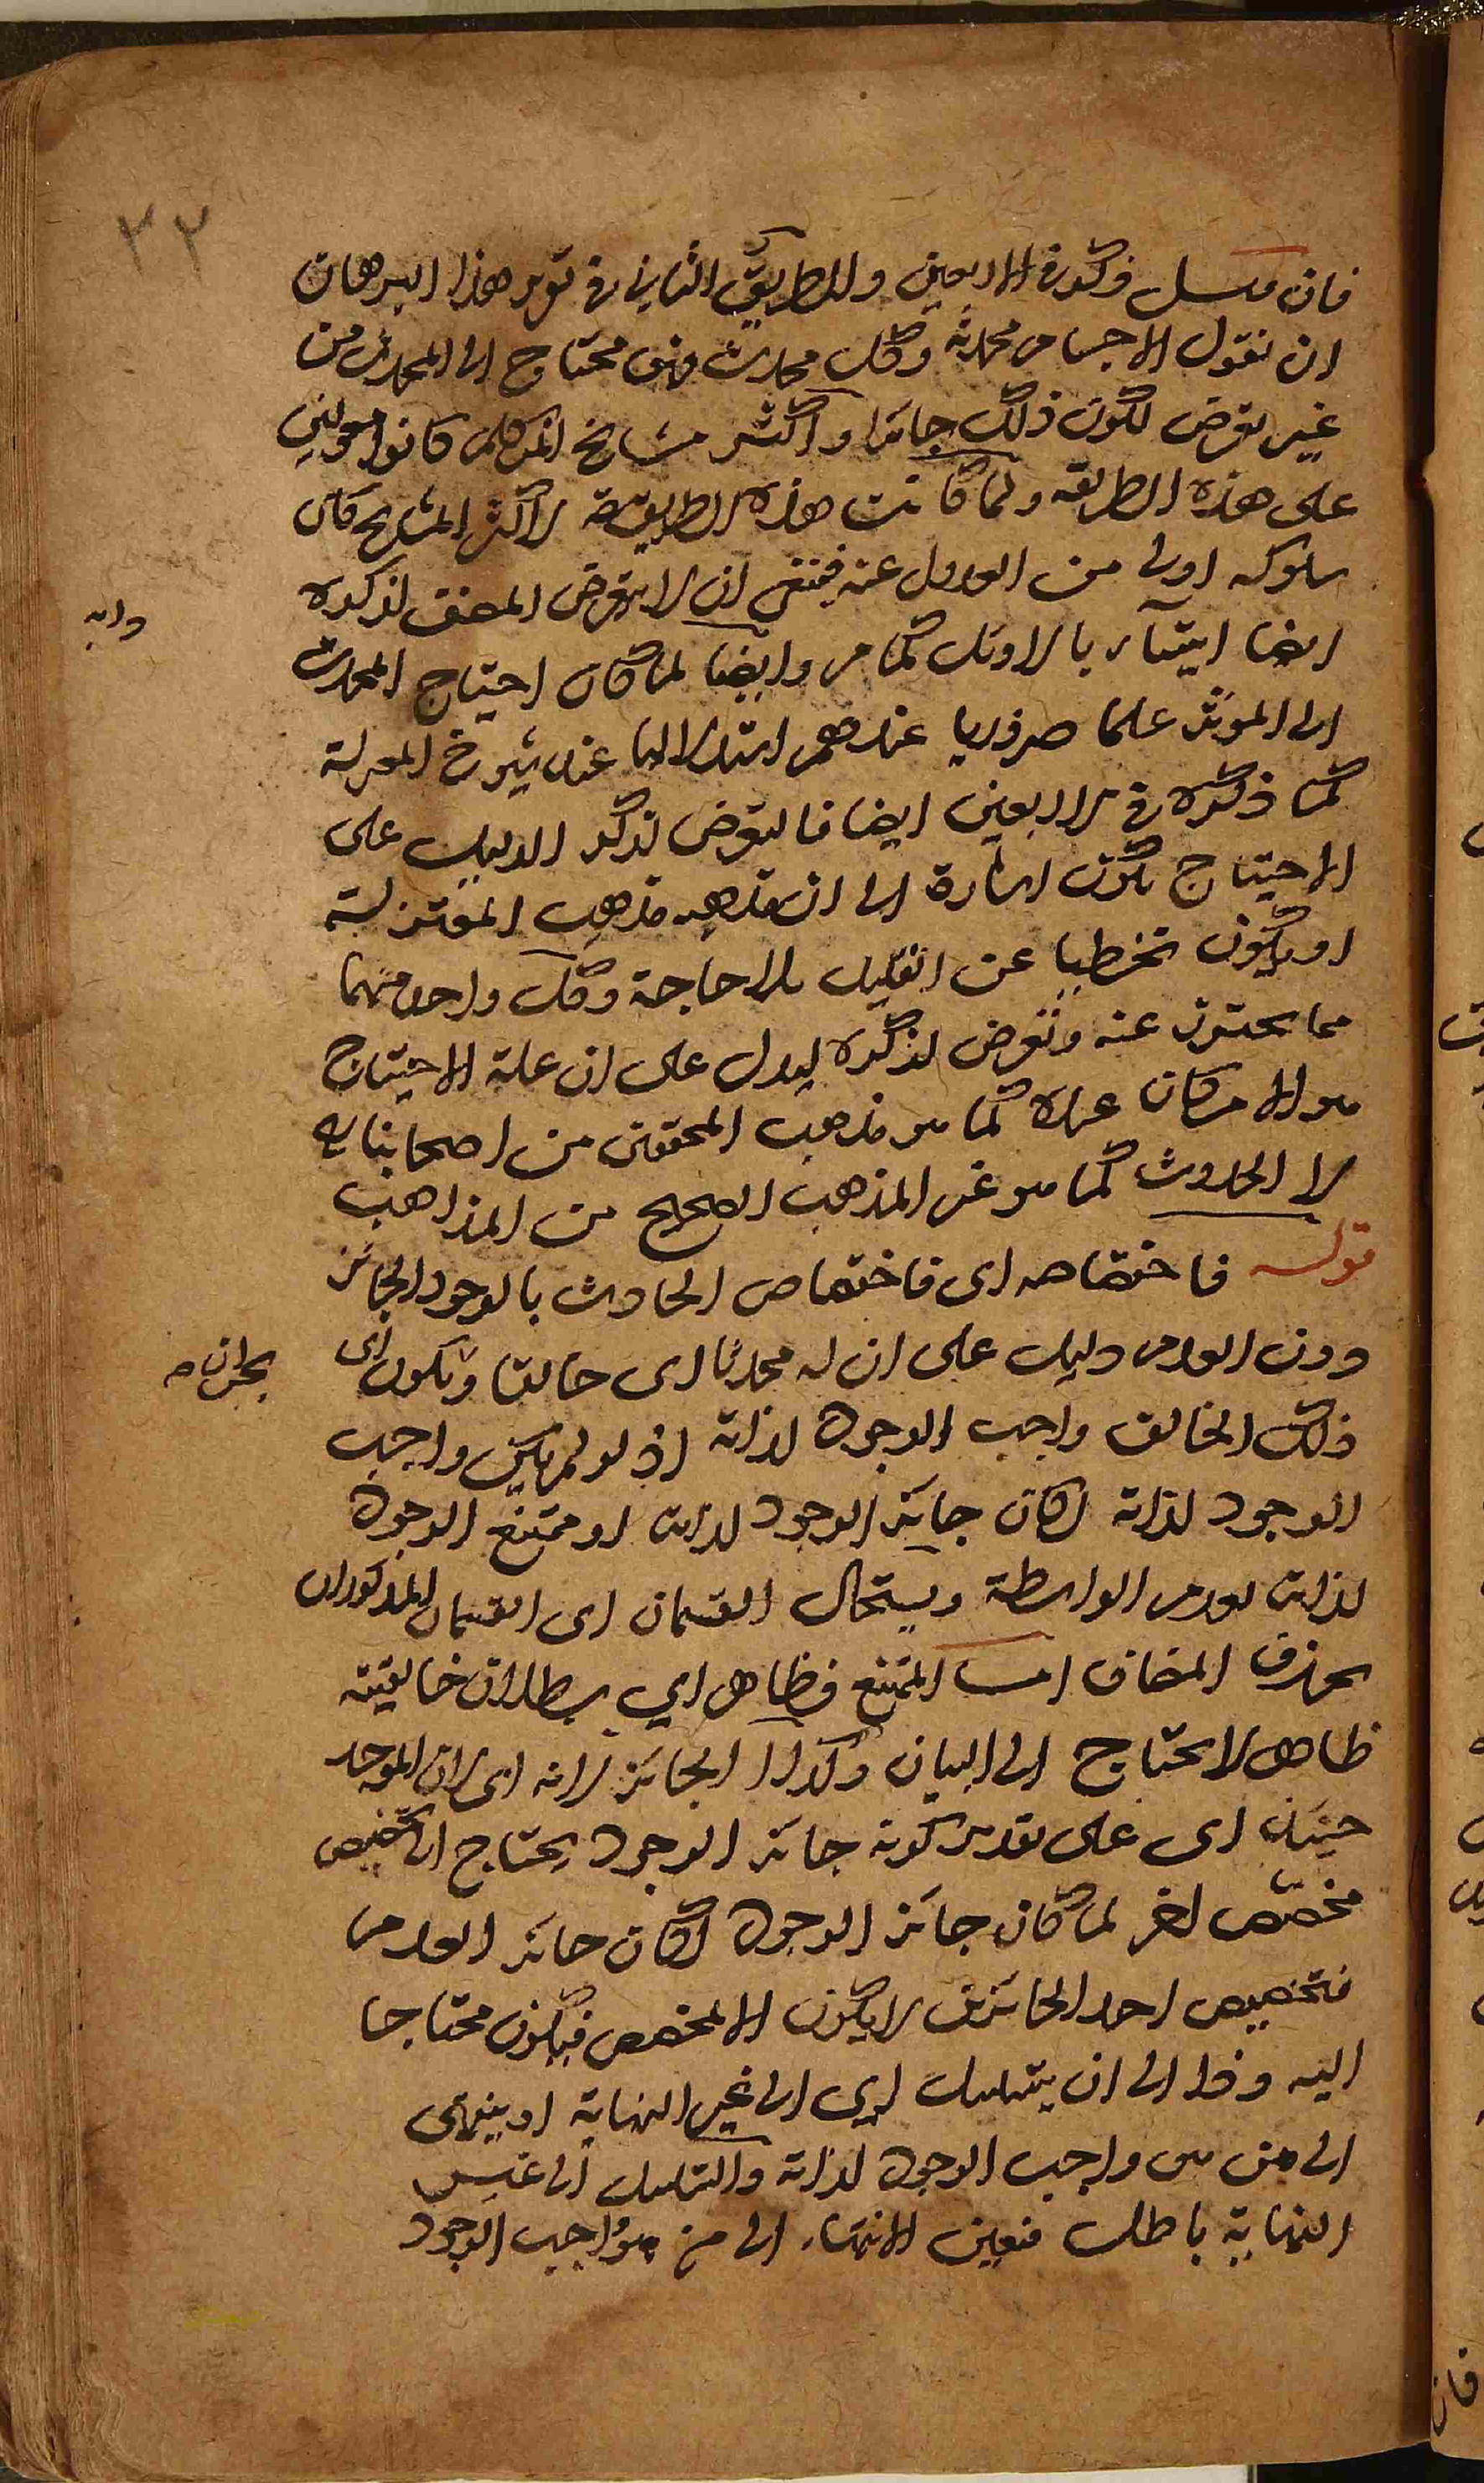 ٢٢
فان قيل ذكر في الاربعين والطريق الثاني في تقرير هذا البرهان
ان نقول الاجسام محدثة وكل محدث فهو محتاج الى المحدث من
غير تعرض لكون ذلك جائزا واكثر مشايخ المتكلمين كانوا معولين
على هذه الطريقة ولما كانت هذه الطريقة لاكثر المشايخ كان
سلوكه اولى من العدول عنه فينبغي ان لا يتعرض المصنف لذكره
ايضا ايتاء بالاوئل كما مر وايضا لما كان احتياج المحدث
الى المؤثر علما ضروريا عندهم استدلاليا عند شيوخ المعتزلة
كما ذكره في الاربعين ايضا فالتعرض لذكر الدليل على
الاحتياج يكون اشارة الى ان مذهبه مذهب المعتزلة
او يكون تخطيا عن القليل بلا حاجة وكل واحد منهما
مما يحترز عنه وتعرض لذكره ليدل على ان علة الاحتياج
هو الامكان عنده كما هو مذهب المحققين من اصحابنا
لا الحدوث كما هو غير المذهب الصحيح من المذاهب
قوله فاختصاصه اى فاختصاص الحادث بالوجود الجائز
دون العدم دليل على ان له محدثا اى خالقا ويكون اى
ذلك الخالق واجب الوجود لذاته اذ لو لم يكن واجب
الوجود لذاته لكان جائز الوجود لذاته او ممتنع الوجود
لذاته لعدم الواسطة ويستحال القسمان اى القسمان المذكوران
بحذف المضاف اما الممتنع فظاهر اي بطلان خالقيته
ظاهر لا يحتاج الى البيان وكذا الجائز لانه اى لان الموجد
حينئذ اى على تقدير كونه جائز الوجود يحتاج الى تخصيص
مخصص اخر لما كان جائز الوجود لكان جائز العدم
فتخصيص احد الجائزين لا يكون الا لمخصص فيكون محتاجا
اليه وهذا الى ان يتسلسل اي الى غير النهاية او ينتهى
الى من هو واجب الوجود لذاته والتسلسل الى غير
النهاية باطل فتعين الانتهاء الى من هو واجب الوجود